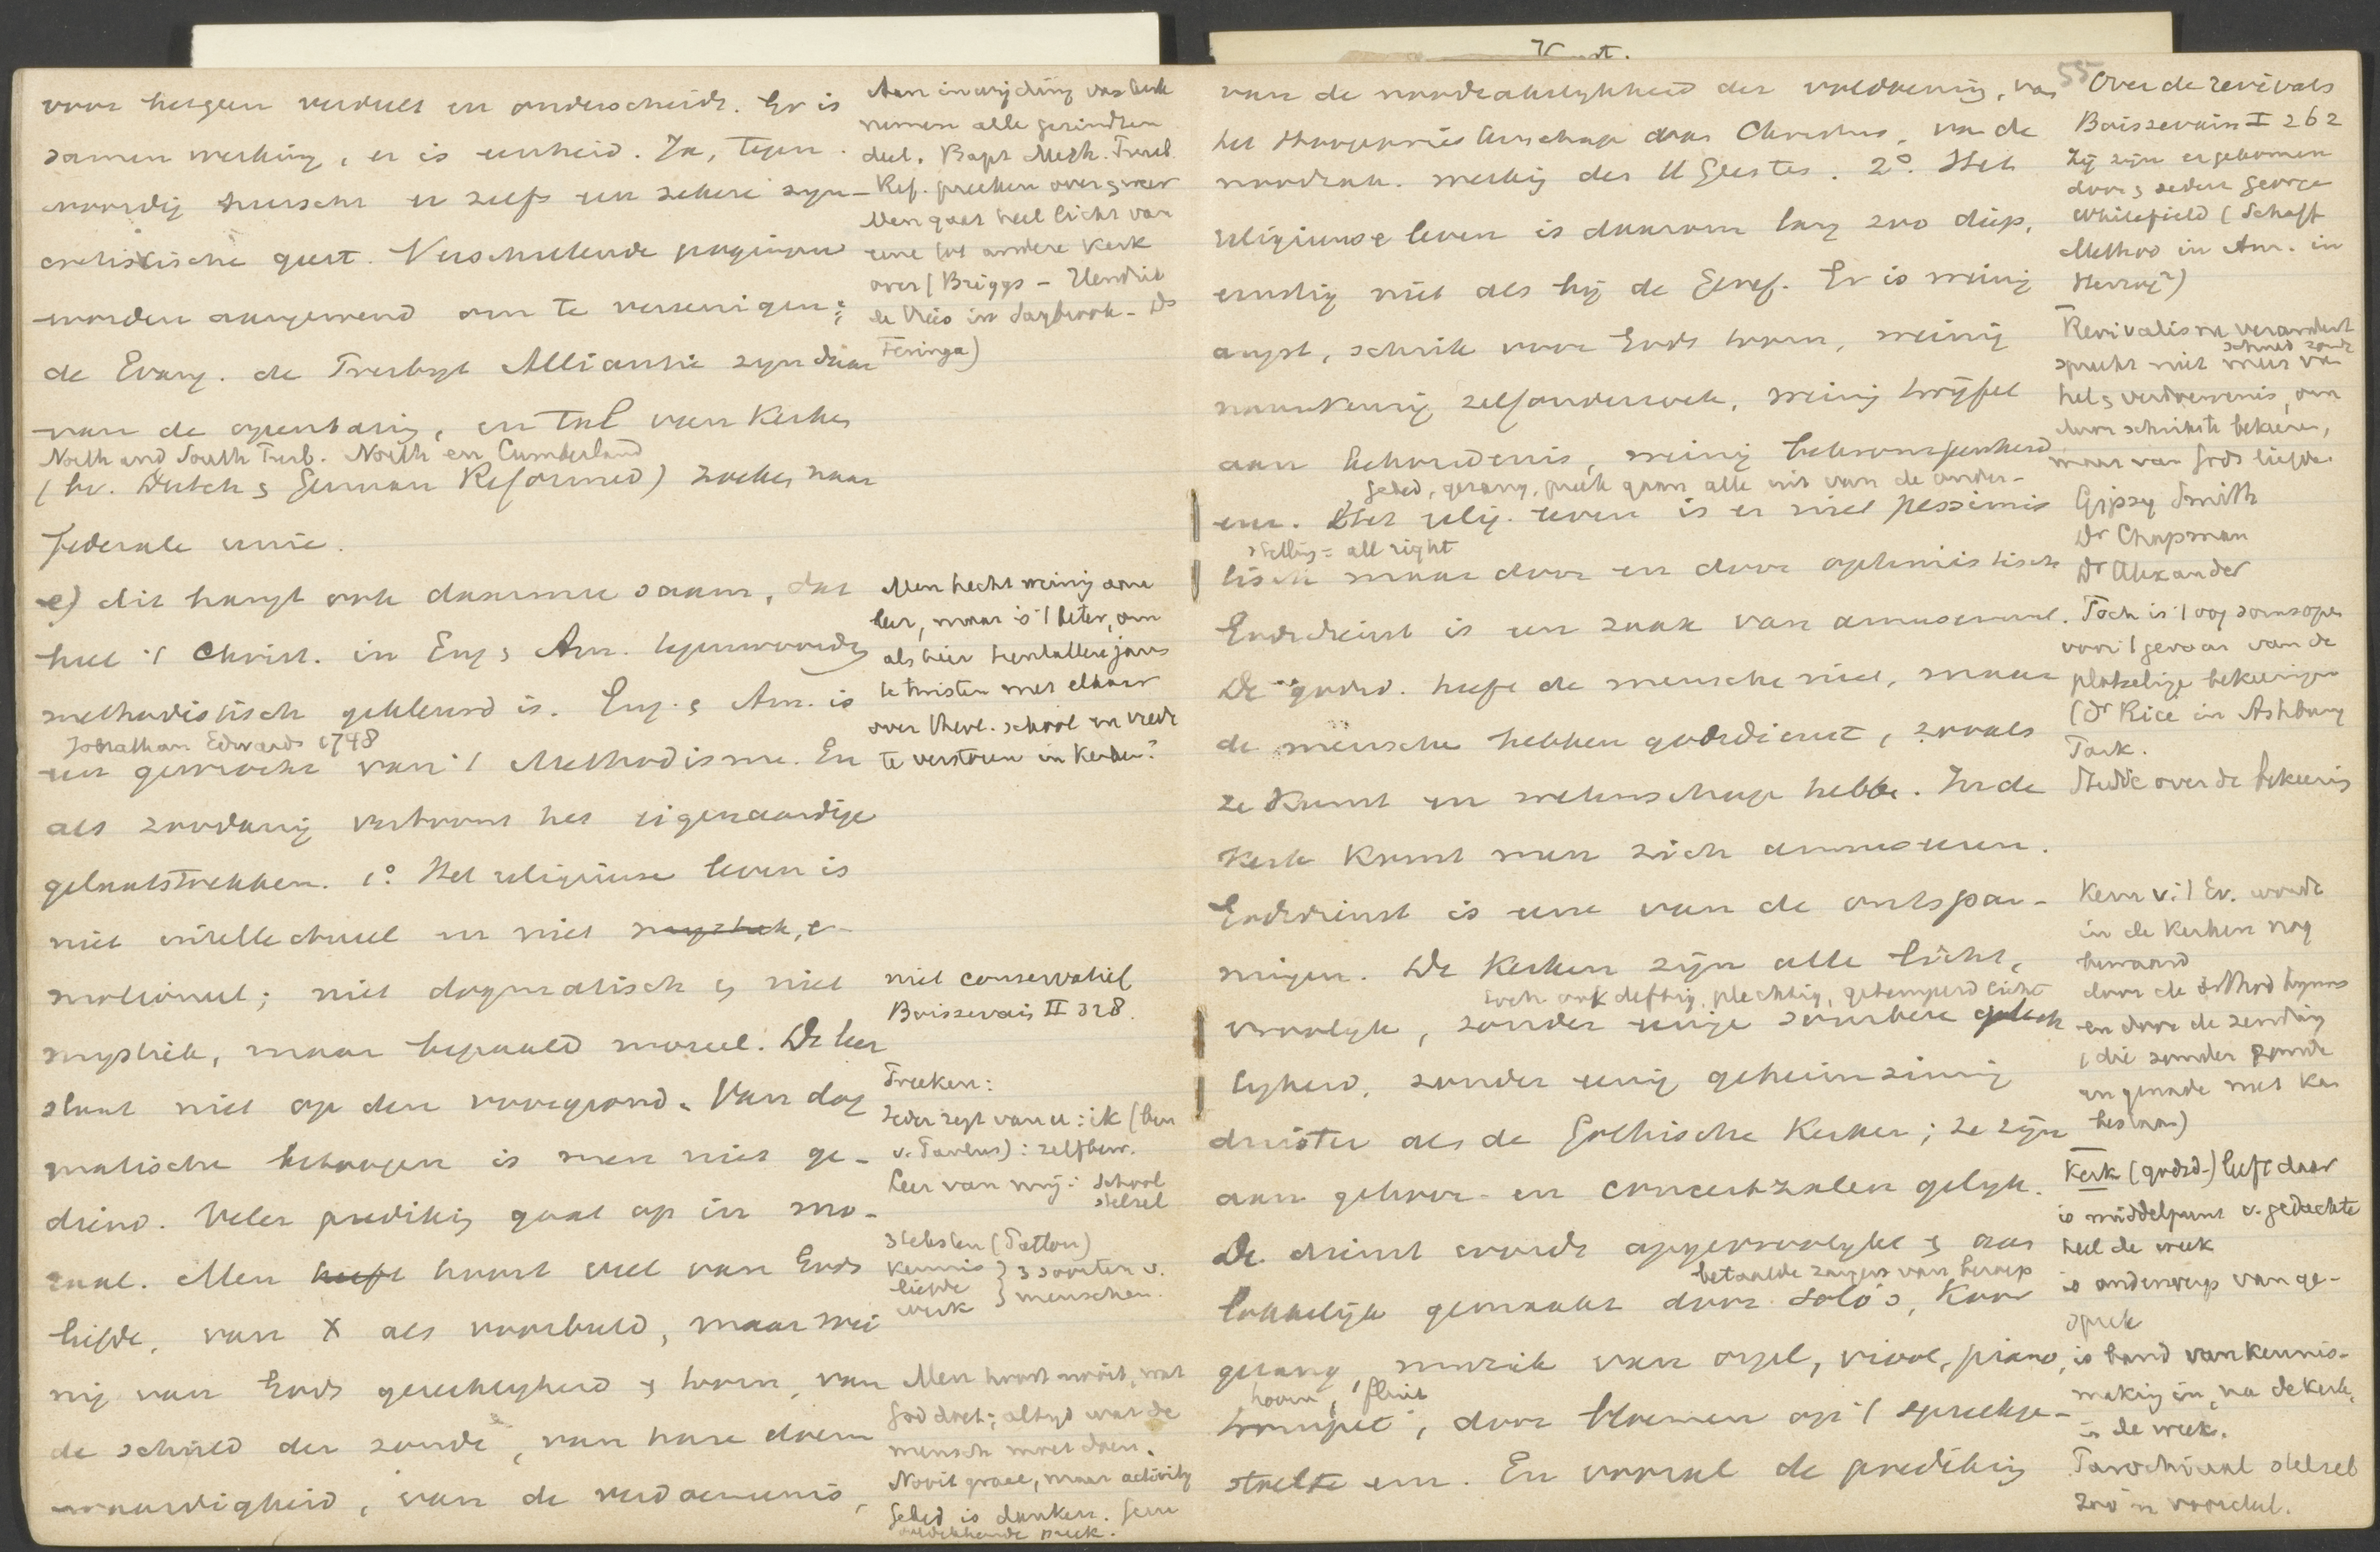 voor hetgeen verdeelt en onderscheidt. Er is
samenwerking, er is eenheid. Ja, tegen-
woordig heerscht er zelfs een zekere syn-
cretistische geest. Verschillende pogingen
worden aangewend om te vereenigen;
de Evang. de Presbyt Alliantie zijn daar
van de openbaring, en tal van Kerken
North and South Presb. North en Cumberland
(bv. Dutch & German Reformed) zoeken naar
federale unie.
e) dit hangt ook daarmee saam, dat
heel 't Christ. in Eng & Am. tegenwoordig
methodistisch gekleurd is. Eng. & Am. is
Jonathan Edwards 1748
een gewrocht van 't Methodisme. En
als zoodanig vertoont het eigenaardige
gelaatstrekken. 1° Het religieuse leven is
niet intellectueel en niet mystiek, e-
motioneel; niet dogmatisch & niet
mystiek, maar bepaald moreel. De leer
staat niet op den voorgrond. Van dog
matische betoogen is men niet ge-
diend. Veler prediking gaat op in mo-
raal. Men heeft hoort veel van Gods
liefde, van X als voorbeeld, maar wei
nig van Gods gerechtigheid & toorn, van
de schuld der zonde, van hare doem
waardigheid, van de verdoemenis,
Aan inwijding van kerk
nemen alle gezindten
deel. Bapt Meth. Presb.
Ref. preeken over & weer
Men gaat heel licht van
eene tot andere Kerk
over (Briggs - Hendrik
de Vries in Saybrook - Ds
Feringa)
Men hecht weinig aan
leer, maar is 't beter, om
als hier tientallen jaren
te twisten met elkaar
over theol. school en vrede
te verstoren in Kerken?
niet conservatief
Boissevain II 328.
Preeken:
Ieder zegt van u: ik (ben
v. Paulus): zelfbew.
Leer van mij: school
stelsel
stelsten (Patton)
kennis
liefde } 3 soorten v.
werk } menschen.
Men hoort nooit, wat
God doet; altijd wat de
mensch moet doen.
Nooit grace, maar activity
Gebed is danken. Geen
preek.
van de noodzakelijkheid der voldoening, van
het Hoogepriesterschap van Christus, van de
noodzak. werking des H Geestes. 2°. Het
religieuse leven is daarom lang zoo diep,
ernstig niet als bij de Geref. Er is weinig
angst, schrik voor Gods toorn, weinig
nauwkeurig zelfonderzoek, weinig twijfel
aan behoudenis, weinig bekrompenheid
gebed, gezang, preek gaan alle uit van de onder-
een. Het relig. leven is er niet pessimis
stelling = all right
tisch maar door en door optimistisch
Godsdienst is een zaak van amusement.
De godsd. heeft de menschen niet, maar
de menschen hebben godsdienst, zooals
ze Kunst en wetenschap hebben. In de
Kerk komt men zich amuseeren.
Godsdienst is eene van de ontspan-
ningen. De Kerken zijn alle licht,
toch ook deftig, plechtig, getemperd licht
vroolijk, zonder eenige sombere
lijkheid, zonder eenig geheimzinnig
duister als de Gothische Kerken; ze zijn
aan gehoor- en concertzalen gelijk.
De dienst wordt opgevroolijkt & aan
betaalde zangers van beroep
lokkelijk gemaakt door solo's, Koor
gezang, muziek van orgel, viool, piano,
hoorn, fluit
trompet, door bloemen op 't spreekge-
stoelte enz. En vooral de prediking
55
Over de revivals
Boissevain I 262
Zij zijn er gekomen
door & sedert George
Whitefield (Schaff
Method in Am. in
Herzog²)
Revivalisme verandert
schuld zonde
spreekt niet meer van
hel & verdoemenis, om
door schrik te bekeeren,
maar van Gods liefde.
Gipsy Smith
Dr Chapman
Dr Alexander
Toch is 't oog soms open
voor 't gevaar van de
plotselinge bekeeringen
(Dr Rice in Ashbury
Park.
Studie over de bekeering
Kern v. 't Ev. wordt
in de Kerken nog
bewaard
door de orthod hymns
en door de zending
(die zonder zonde
en genade niet kan
bestaan)
Kerk (godsd-) leeft daar
is middelpunt v. gedachte
heel de week
is onderwerp van ge-
sprek
is band van kennis-
making in, na de kerk,
in de week.
Parochiaal stelsel
zoo'n voordeel.